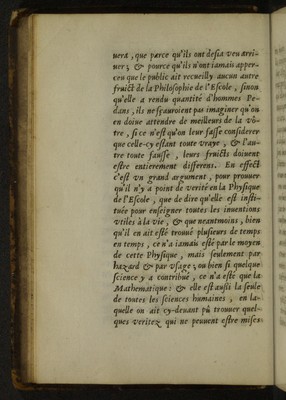 uera, que parce qu'ils ont desia veu arri-
uer; & pource qu'ils n'ont iamais apper-
ceu que le public ait recueilly aucun autre
fruict de la Philosophie de l'Escole, sinon
qu'elle a rendu quantité d'hommes Pe-
dans, ils ne sçauroient pas imaginer qu'on
en doiue attendre de meilleurs de la vô-
tre, si ce n'est qu'on leur fasse considerer
que celle-cy estant toute vraye, & l'au-
tre toute fausse, leurs fruicts doiuent
estre entierement differens. En effect
c'est vn grand argument, pour prouuer
qu'il n'y a point de verité en la Physique
de l'Escole, que de dire qu'elle est insti-
tuée pour enseigner toutes les inuentions
vtiles à la vie, & que neantmoins, bien
qu'il en ait esté trouué plusieurs de temps
en temps, ce n'a iamais esté par le moyen
de cette Physique, mais seulement par
hazard & par vsage; ou bien si quelque
science y a contribué, ce n'a esté que la
Mathematique: & elle est aussi la seule
de toutes les sciences humaines, en la-
quelle on ait cy-deuant pû trouuer quel-
ques veritez qui ne peuuent estre mises